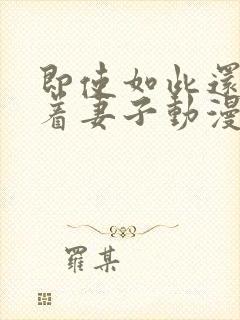 即使如此還
着妻子動漫
羅某